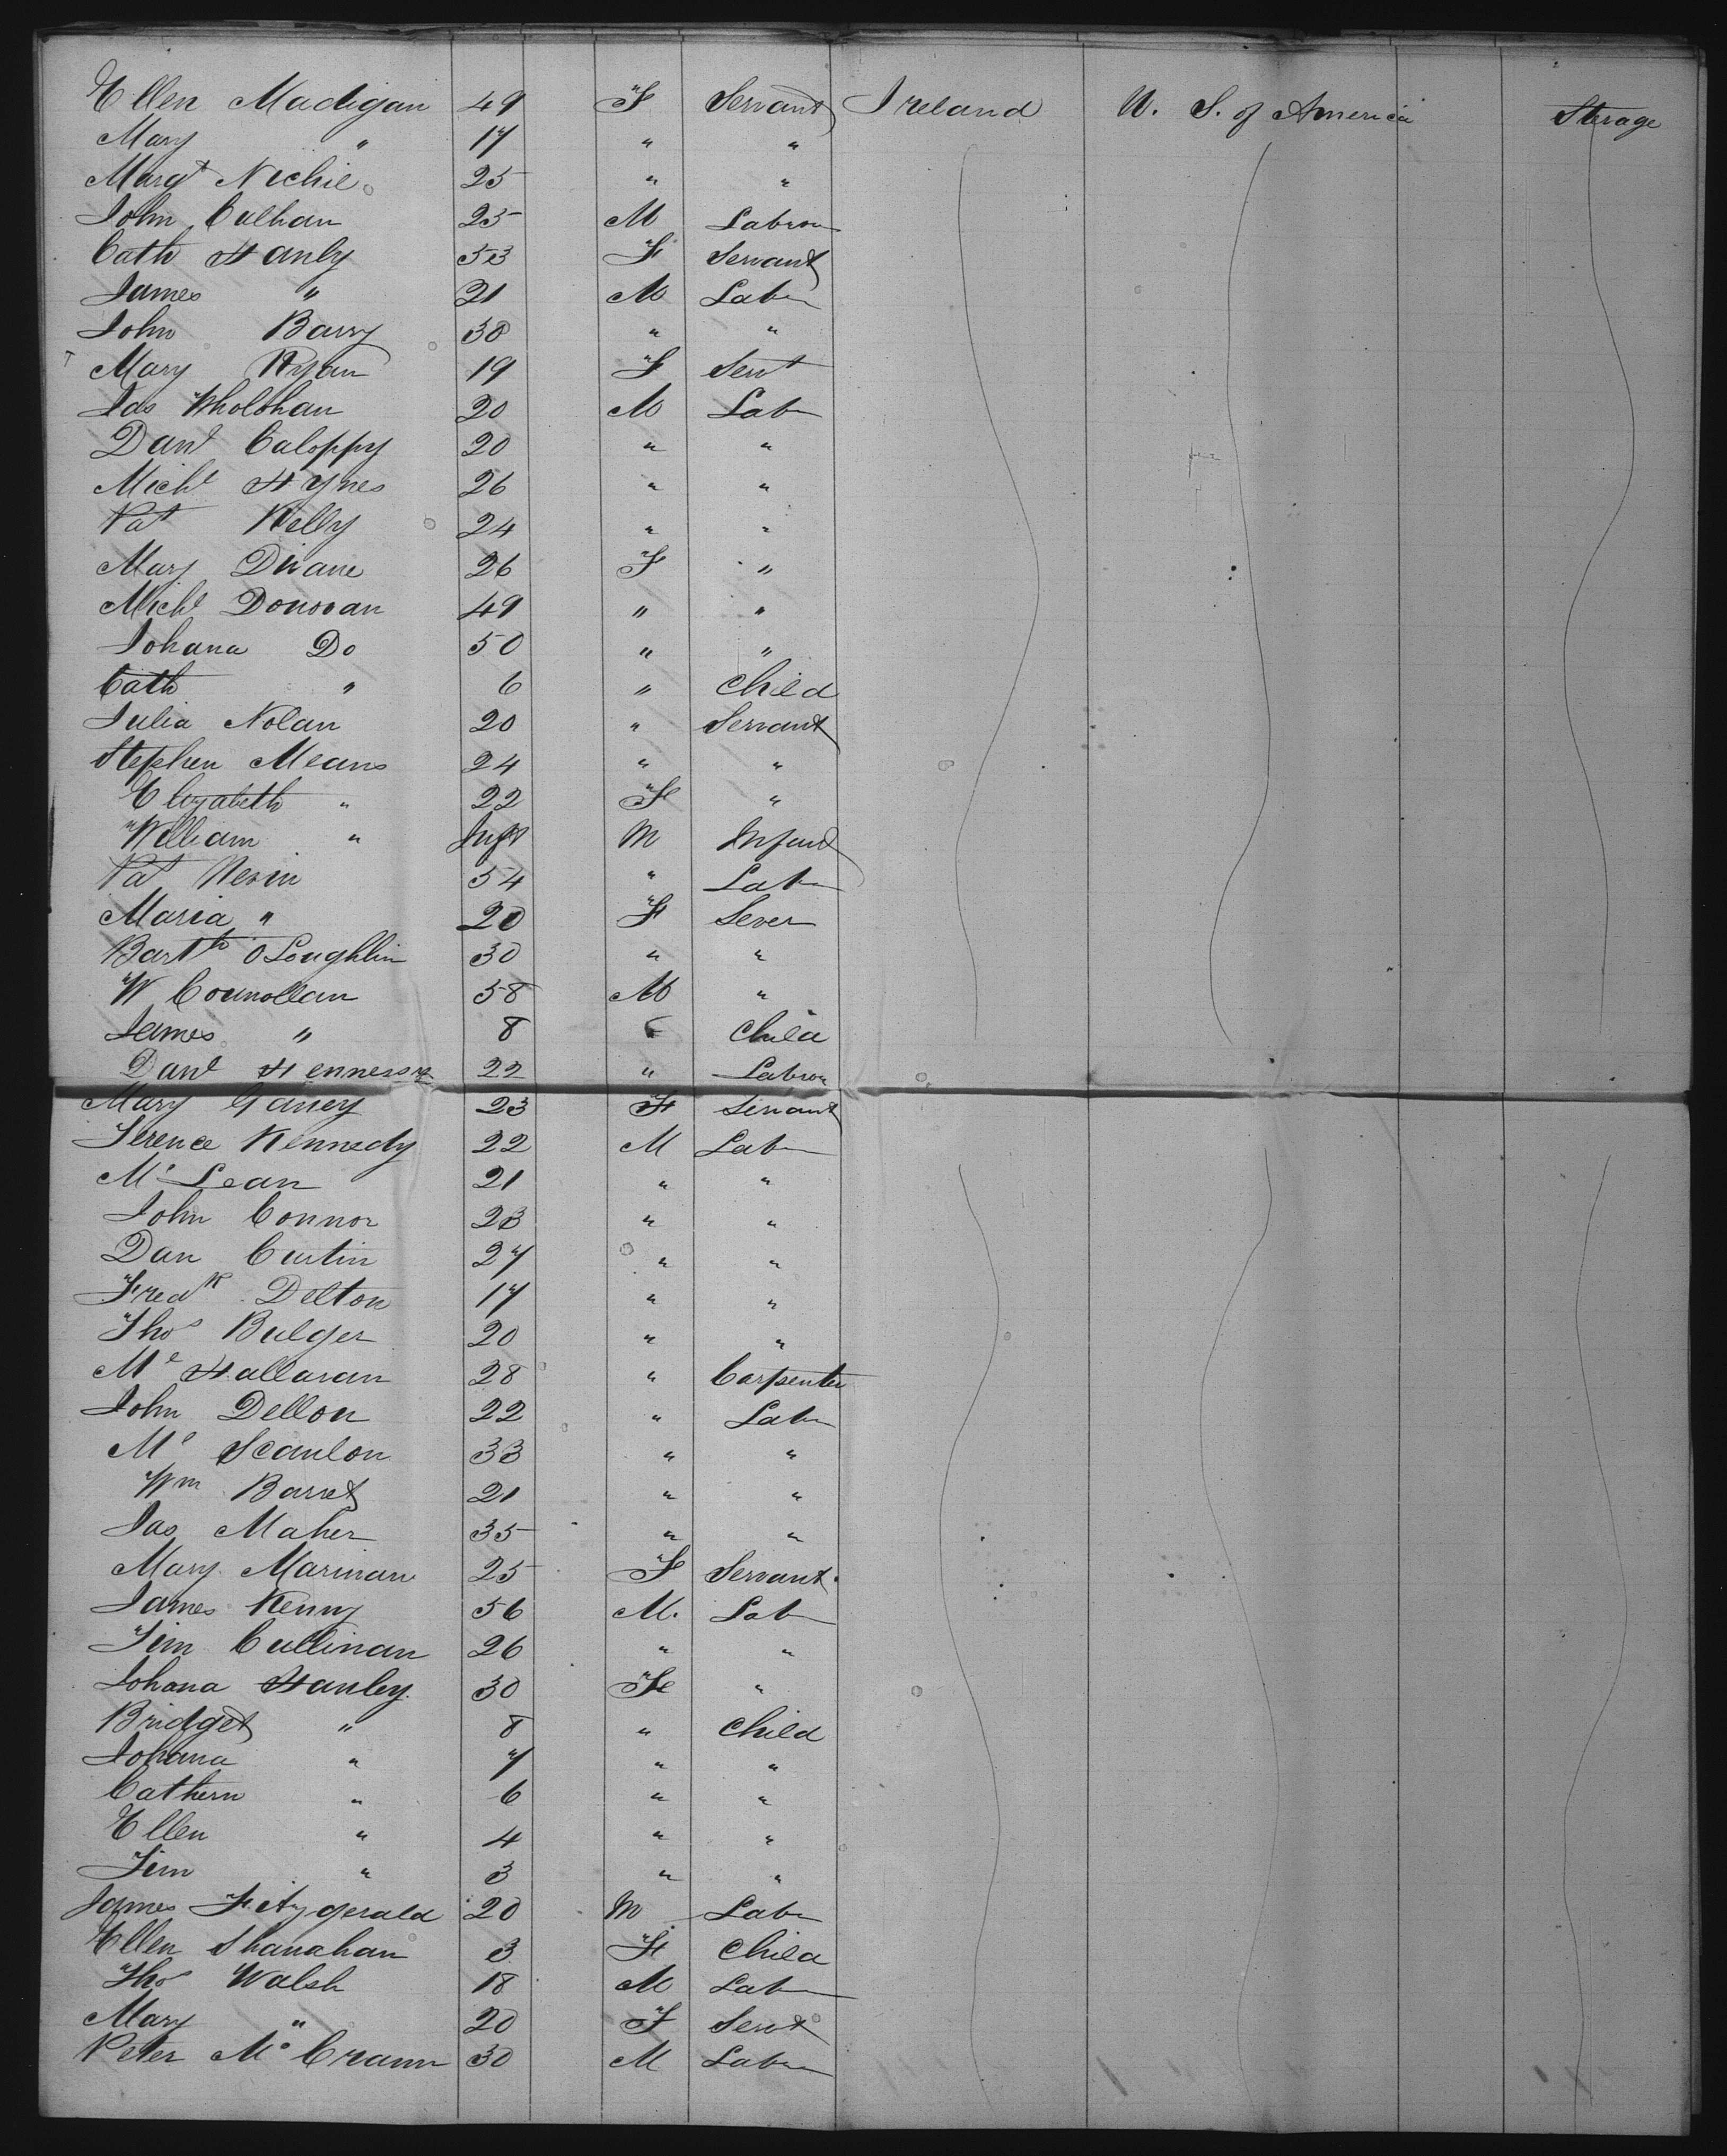 Ellen Madigan 49 F Servant Ireland U. S. of America Sterage
Mary " 17 " "
Margt Nichil 25 " "
John Culhan 25 M Labrou
Cath Hanly 53 F Servant
James " 21 M Labr
John Barry 30 " "
Mary Ryan 19 F Servt
Jas Wholohan 20 M Labr
Danl Caloppy 20 " "
Michl Hynes 26 " "
Pat Kelly 24 " "
Mary Dirane 26 F "
Michl Donovan 49 " "
Johana Do 50 " "
Cath " 6 " Child
Julia Nolan 20 " Servant
Stephen Means 24 " "
Elizabeth " 22 F "
William " Inft M Infant
Pat Nevin 54 " Labr
Maria " 20 F Sever
Barth OLoughlin 30 " "
W Counollan 58 M "
James " 8 " Child
Danl Hennessy 22 " Labrou
Mary Ganey 23 F Servant
Terence Kennedy 22 M Labr
Ml Lean 21 " "
John Connor 23 " "
Dan Curtin 27 " "
Fredk Delton 17 " "
Thos Bulger 20 " "
Ml Hallaran 28 " Carpenter
John Dellon 22 " Labr
Ml Scanlon 33 " "
Wm Barret 21 " "
Jas Maher 35 " "
Mary Marinan 25 F Servant
James Kenny 56 M. Labr
Tim Cullinan 26 " "
Johana Hanley 30 Fe "
Bridget " 8 " Child
Johana " 7 " "
Cathern " 6 " "
Ellen " 4 " "
Tim " 3 " "
James Fitzgerald 20 M Labr
Ellen Shanahan 3 F Child
Thos Walsh 18 M Labr
Mary " 20 F Servt
Peter Mc Crann 30 M Labr